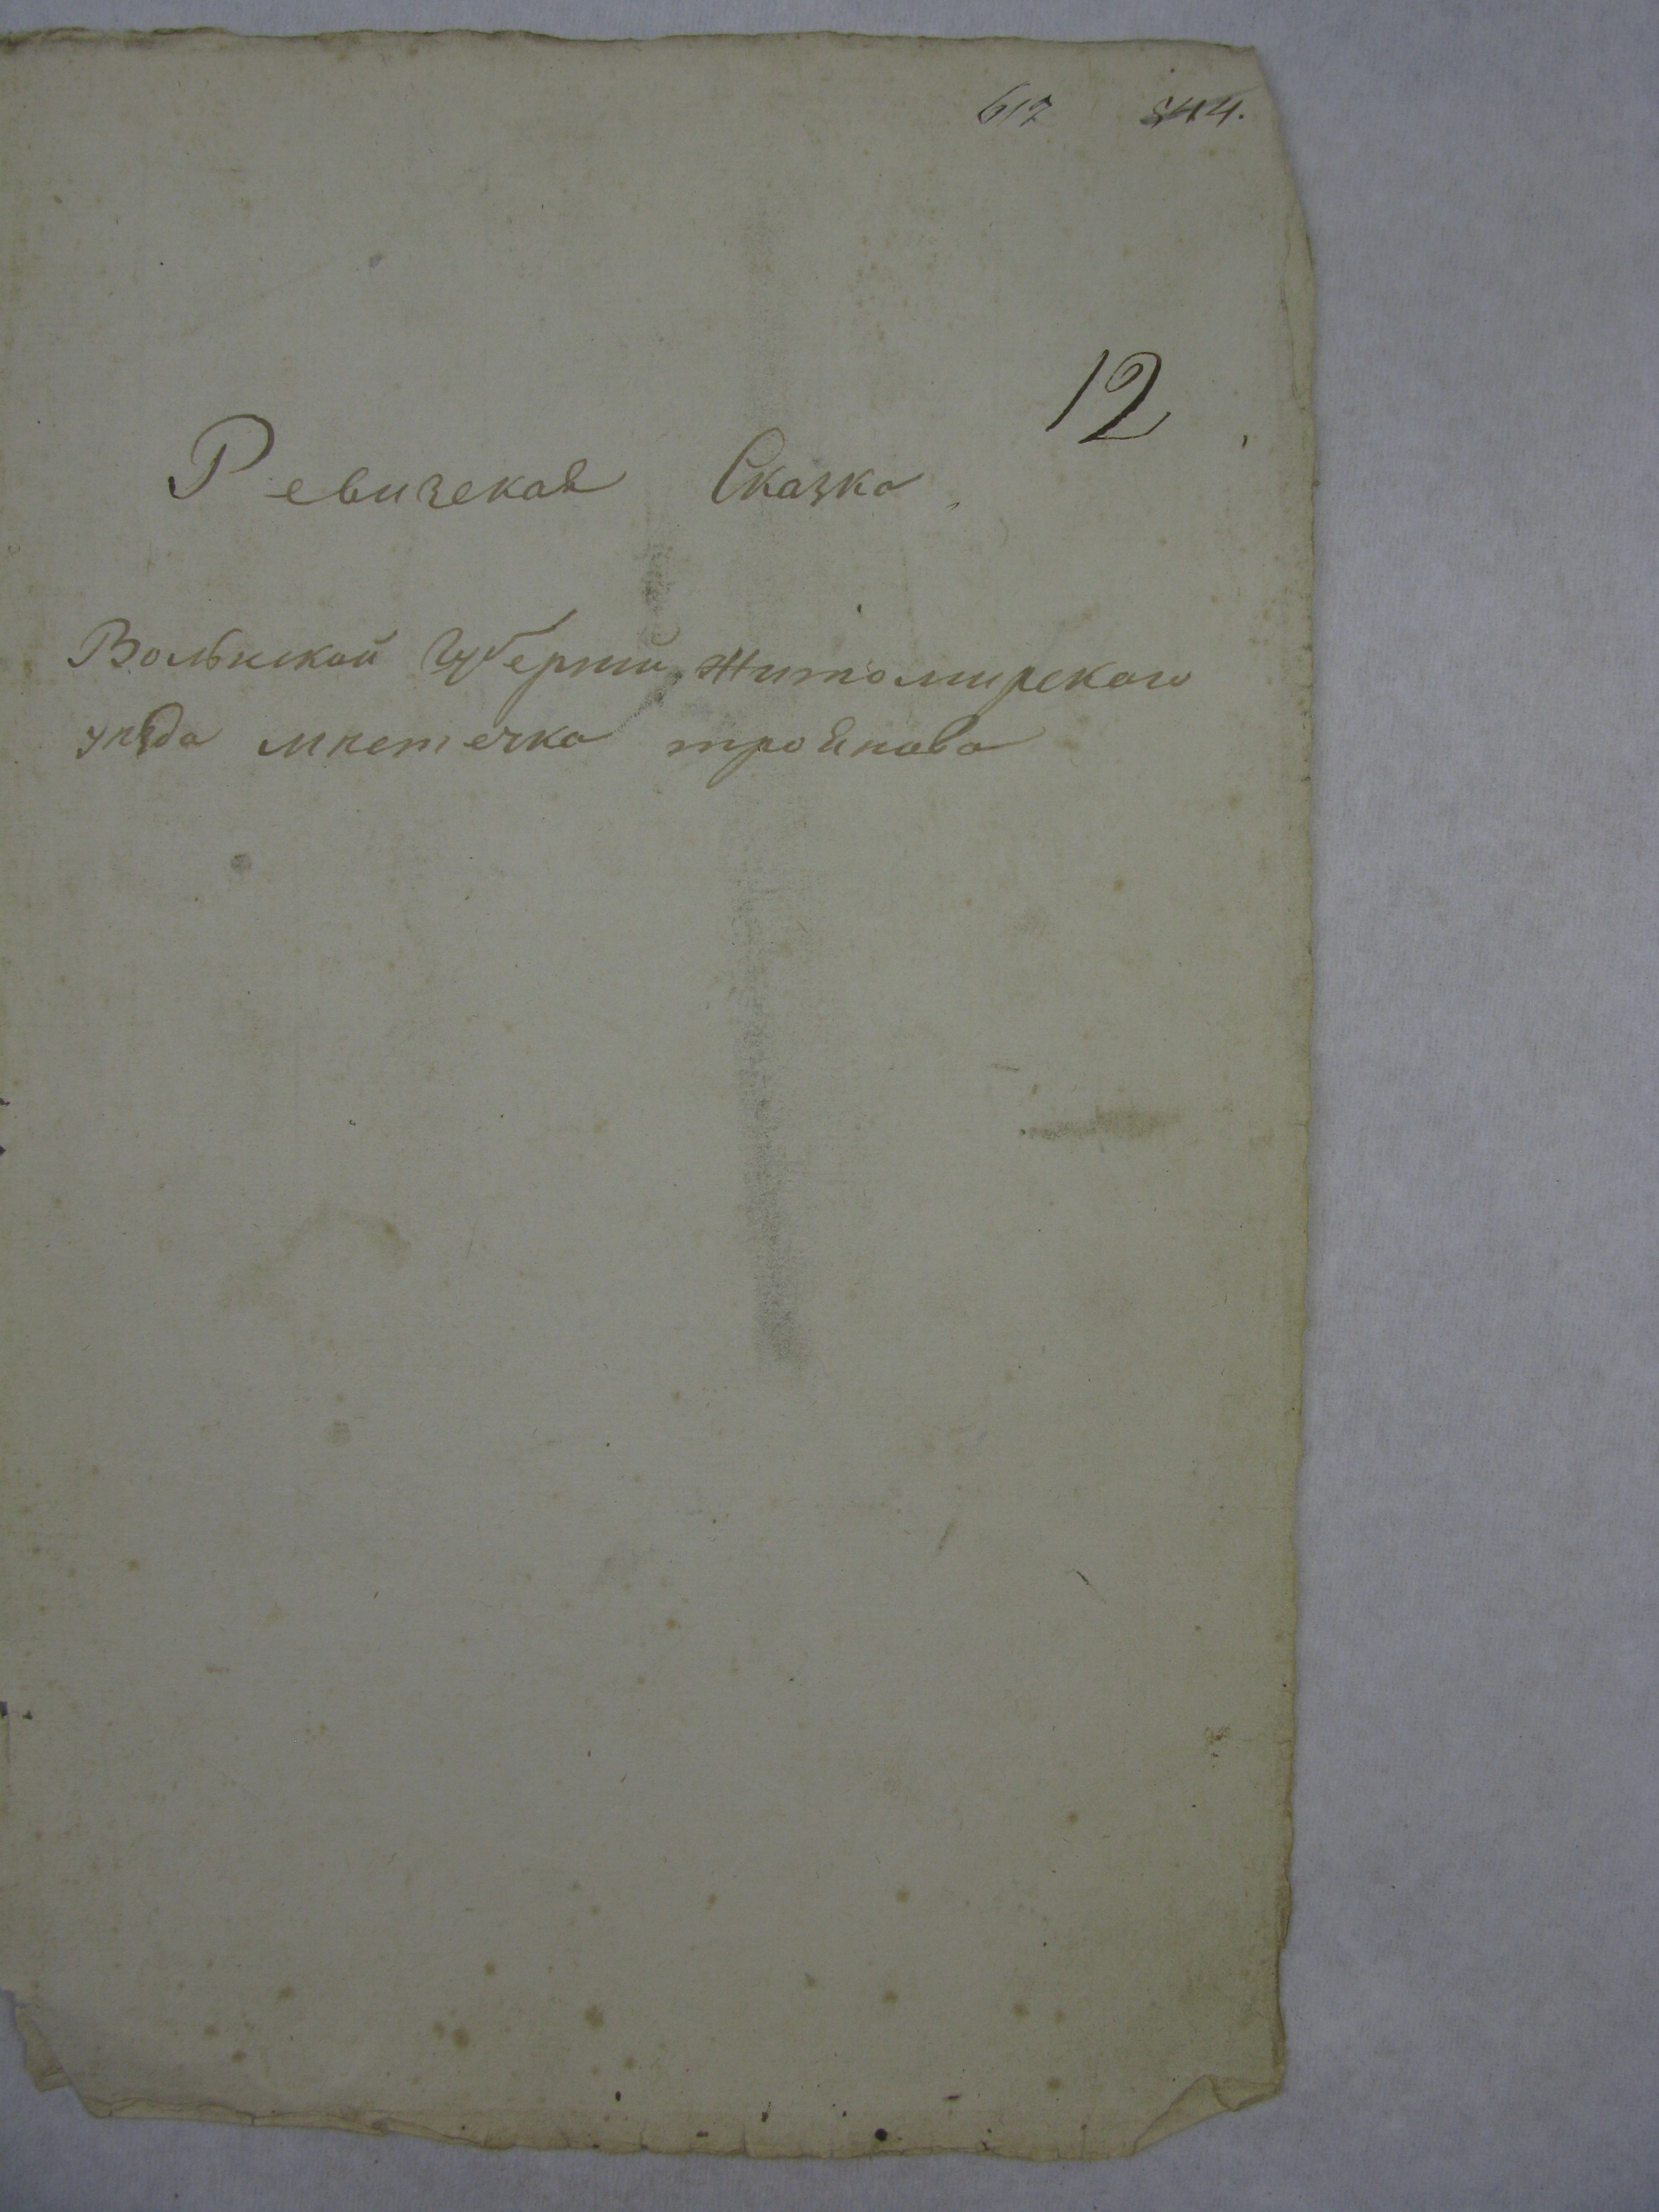 617 544.
12
Ревизская Сказка
Волынской Губернии Житомирского
уѣзда мѣстечка трояновa